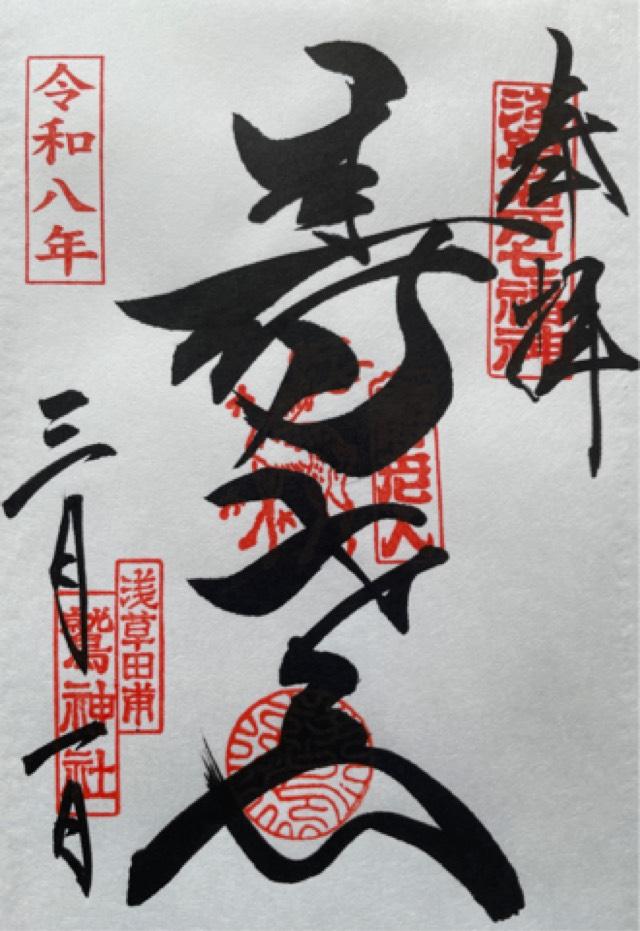 奉拝
浅草名所七福神
寿老人
寿老人
令和八年
三月一日
浅草田甫
鷲神社